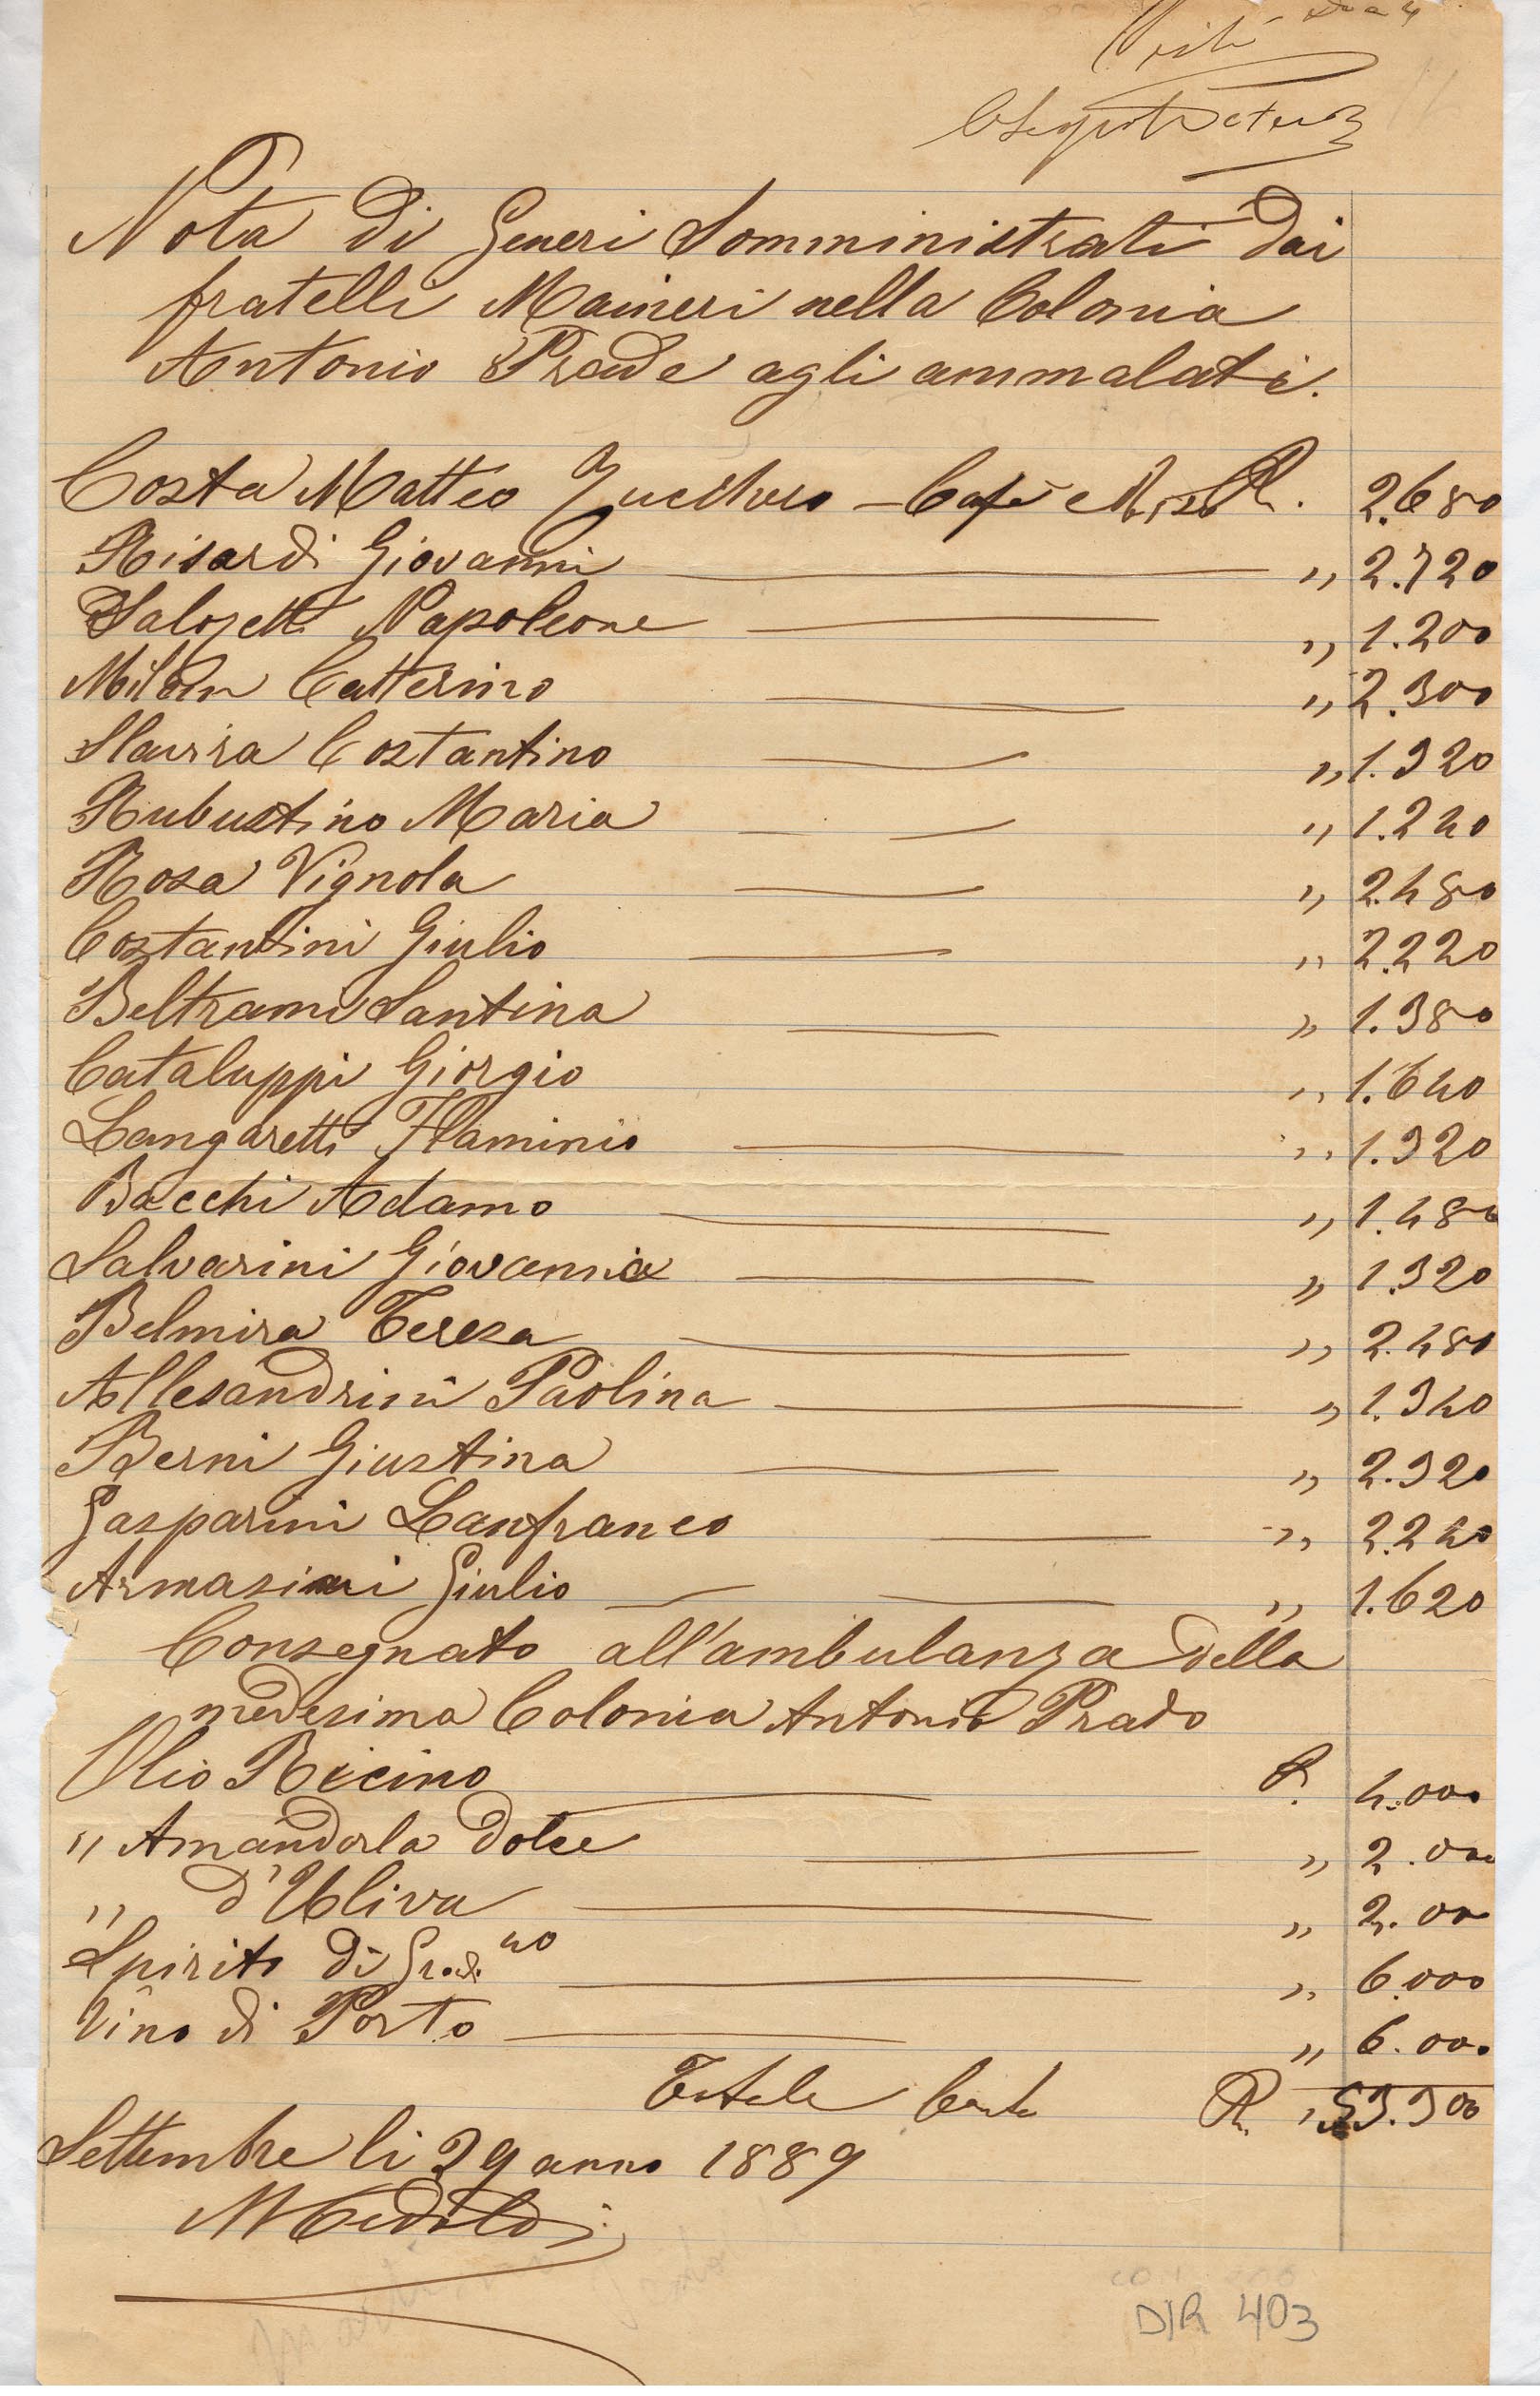 Nota di Generi Somministrati dai
fratelli Maineri nella Colonia
Antonio Prade agli ammalati.
Costa Matteo Zucchero – Cafè e Riso R. 2.680
Risardi Giovanni " 2.720
Salozetti Napoleone " 1.200
Milan Catterino " 2.300
Slavira Costantino " 1.320
Rubustino Maria " 1.240
Rosa Vignola " 2.480
Costantini Giulio " 2.220
Beltrami Santina " 1.380
Cataluppi Giorgio " 1.640
Langaretti Flaminio " 1.320
Bacchi Adamo " 1.480
Salvarini Giovannia " 1.320
Belmira Teresa " 2.480
Allesandrini Paolina " 1.340
Berni Giustina " 2.320
Gasparini Lanfranco " 2.240
Armasini Giulio " 1.620
Consegnato all'ambulanza della
medesima Colonia Antonio Prado
Olio Ricino R. 4.000
" Amandorla dolce " 2.000
" d'Uliva " 2.000
Spirito di Gradi 40 " 6.000
Vino di Porto " 6.000
Totale R. 53.300
Settembre li 29 anno 1889
Medoldi
DIR 403